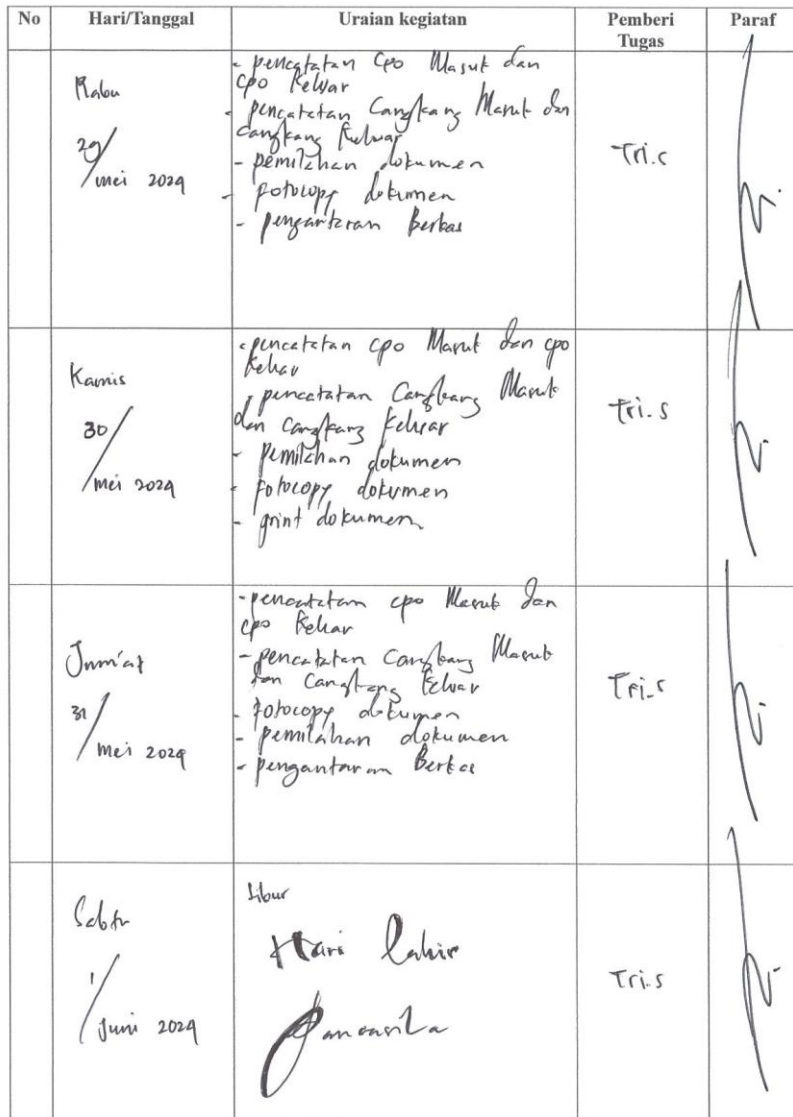 No Hari/Tanggal Uraian kegiatan Pemberi Tugas Paraf
Rabu
29/mei 2024
- pencatatan Cpo Masuk dan
cpo Keluar
- pencatatan Cangkang Masuk dan
cangkang Keluar
- pemilahan dokumen
- fotocopy dokumen
- pengantaran Berkas
Tri.s
Kamis
30/mei 2024
- pencatatan cpo Masuk dan cpo
Keluar
- pencatatan Cangkang Masuk
dan cangkang Keluar
- pemilahan dokumen
- fotocopy dokumen
- print dokumen
Tri.s
Jum'at
31/mei 2024
- pencatatan cpo Masuk dan
cpo Keluar
- pencatatan Cangkang Masuk
dan Cangkang Keluar
- fotocopy dokumen
- pemilahan dokumen
- pengantaran Berkas
Tri.s
Sabtu
1/Juni 2024
Libur
Hari Lahir
Pancasila
Tri.s